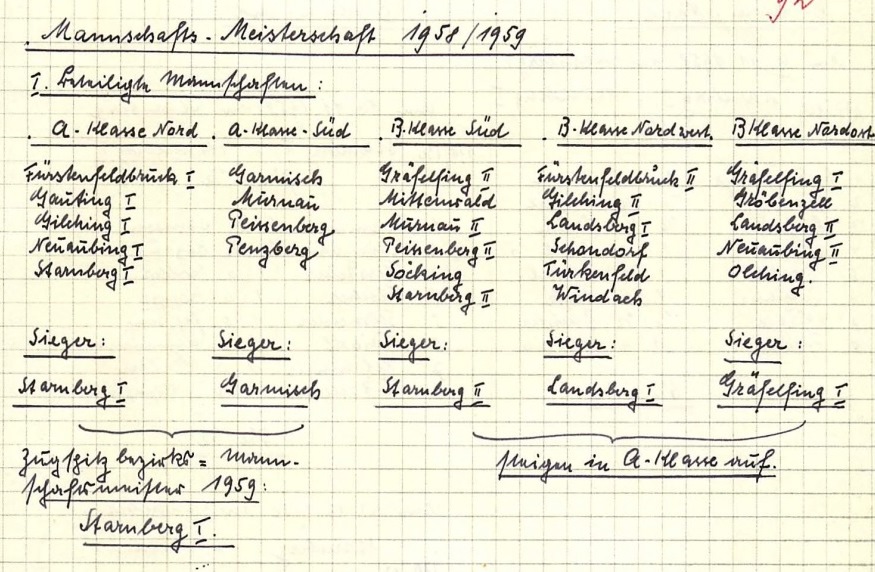 92
Mannschafts-Meisterschaft 1958/1959
I. Beteiligte Mannschaften:
A-Klasse Nord A-Klasse-Süd B-Klasse Süd B-Klasse Nordwest. B Klasse Nordost
Fürstenfeldbruck I Garmisch Gräfelfing II Fürstenfeldbruck II Gräfelfing I
Gauting I Murnau Mittenwald Gilching II Gröbenzell
Gilching I Peissenberg Murnau II Landsberg I Landsberg II
Neuaubing I Penzberg Peissenberg II Schondorf Neuaubing II
Starnberg I Söcking Türkenfeld Olching.
Starnberg II Windach
Sieger: Sieger: Sieger: Sieger: Sieger:
Starnberg I Garmisch Starnberg II Landsberg I Gräfelfing I
Zugspitzbezirks=Mann- steigen in A-Klasse auf.
schaftsmeister 1959:
Starnberg I.